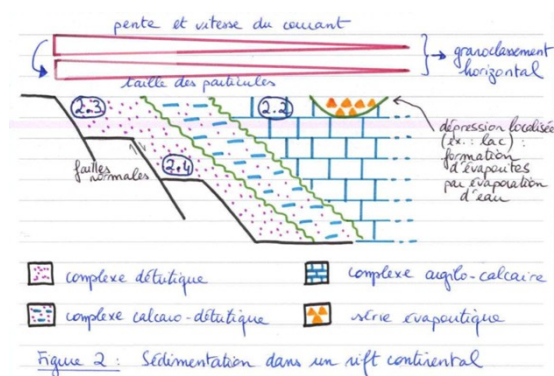 pente et vitesse du courant
taille des particules
→ granoclassement
horizontal
2.3
2.2
2.4
failles
normales
dépression localisée
(ex. : lac) :
formation
d'évaporites
par évaporation
d'eau
complexe détritique
complexe argilo-calcaire
complexe calcaro-détritique
série évaporitique
Figure 2 : Sédimentation dans un rift continental